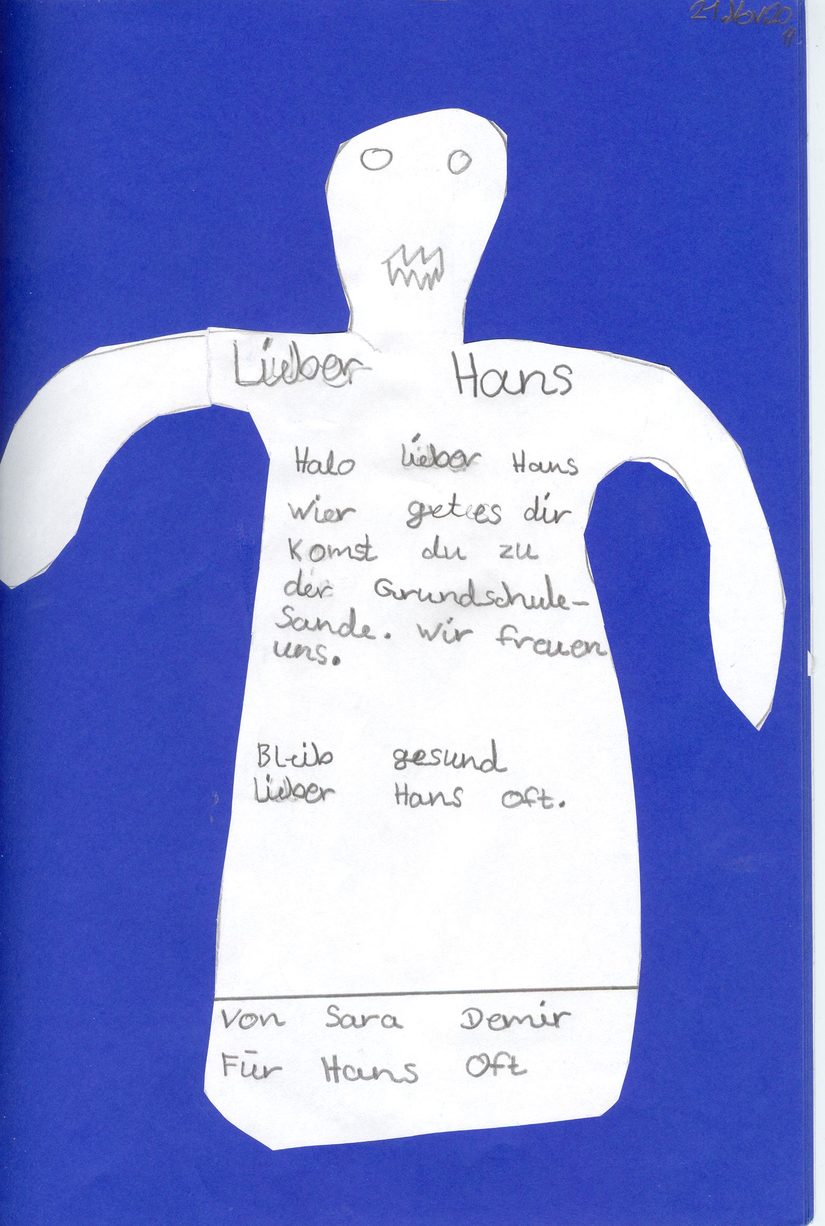 Lieber Hans
Halo lieber Hans
wier getes dir
Komst du zu
der Grundschule-
Sande. wir freuen
uns.
Bleib gesund
lieber Hans Oft.
Von Sara Demir
Für Hans Oft